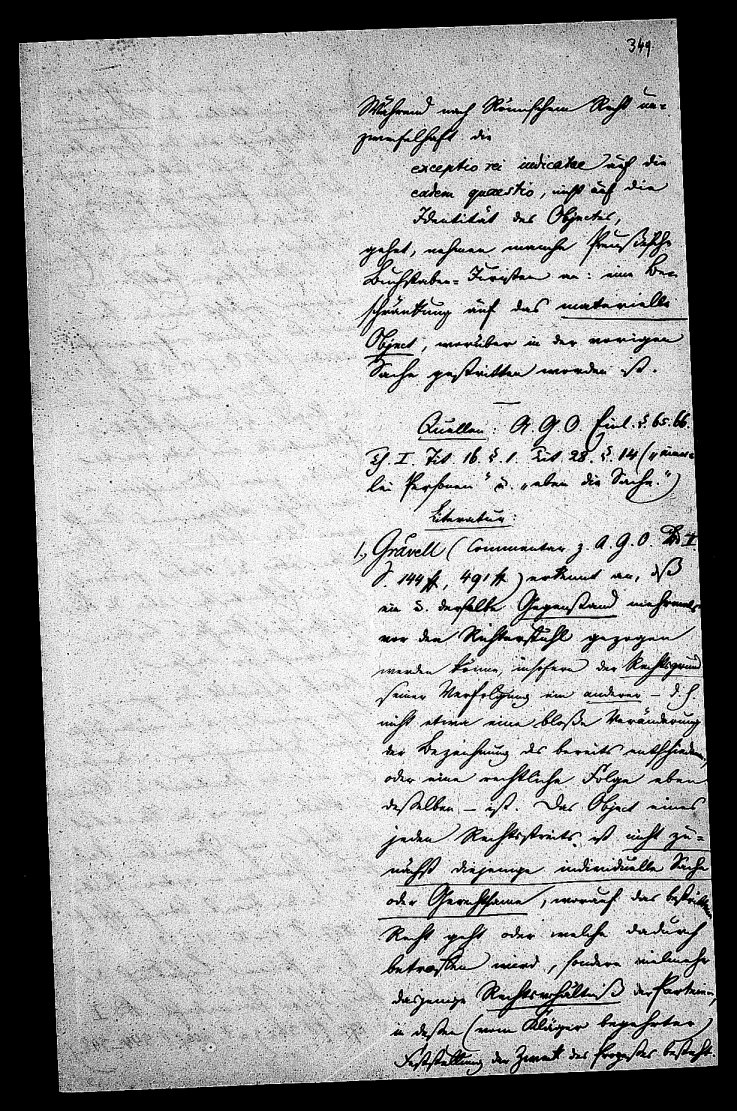 349
Während nach Römischem Recht un-
zweifelhaft die
exceptio rei iudicatae auf die
eadem quaestio, nicht auf die
Identität des Objectes,
gehet, nehmen manche Preußische
Buchstaben-Juristen an: eine Be-
schränkung auf das materielle
Object, worüber in der vorigen
Sache gestritten worden ist.
Quellen: A. G. O. Einl. §. 65. 66.
Th. I. Tit. 16. §. 1. Tit. 28. §. 14 („einer-
lei Personen“ u. „eben die Sache.“)
Literatur:
1., Grävell (Commentar z. A. G. O. Bd. I.
S. 144 ff, 491 ff) erkennt an, daß
ein u. derselbe Gegenstand mehrmals
vor den Richterstuhl gezogen
werden könne, insofern der Rechtsgrund
seiner Verfolgung ein anderer – d. h.
nicht etwa eine bloße Veränderung
der Bezeichnung des bereits entschiedenen,
oder eine rechtliche Folge eben
desselben – ist. Das Object eines
jeden Rechtsstreits ist nicht zu-
nächst diejenige individuelle Sache
oder Gerechtsame, worauf das bestrittene
Recht geht oder welche dadurch
betroffen wird, sondern vielmehr
dasjenige Rechtsverhältniß der Parteien,
in dessen (vom Kläger begehrter)
Feststellung der Zweck des Prozesses besteht.